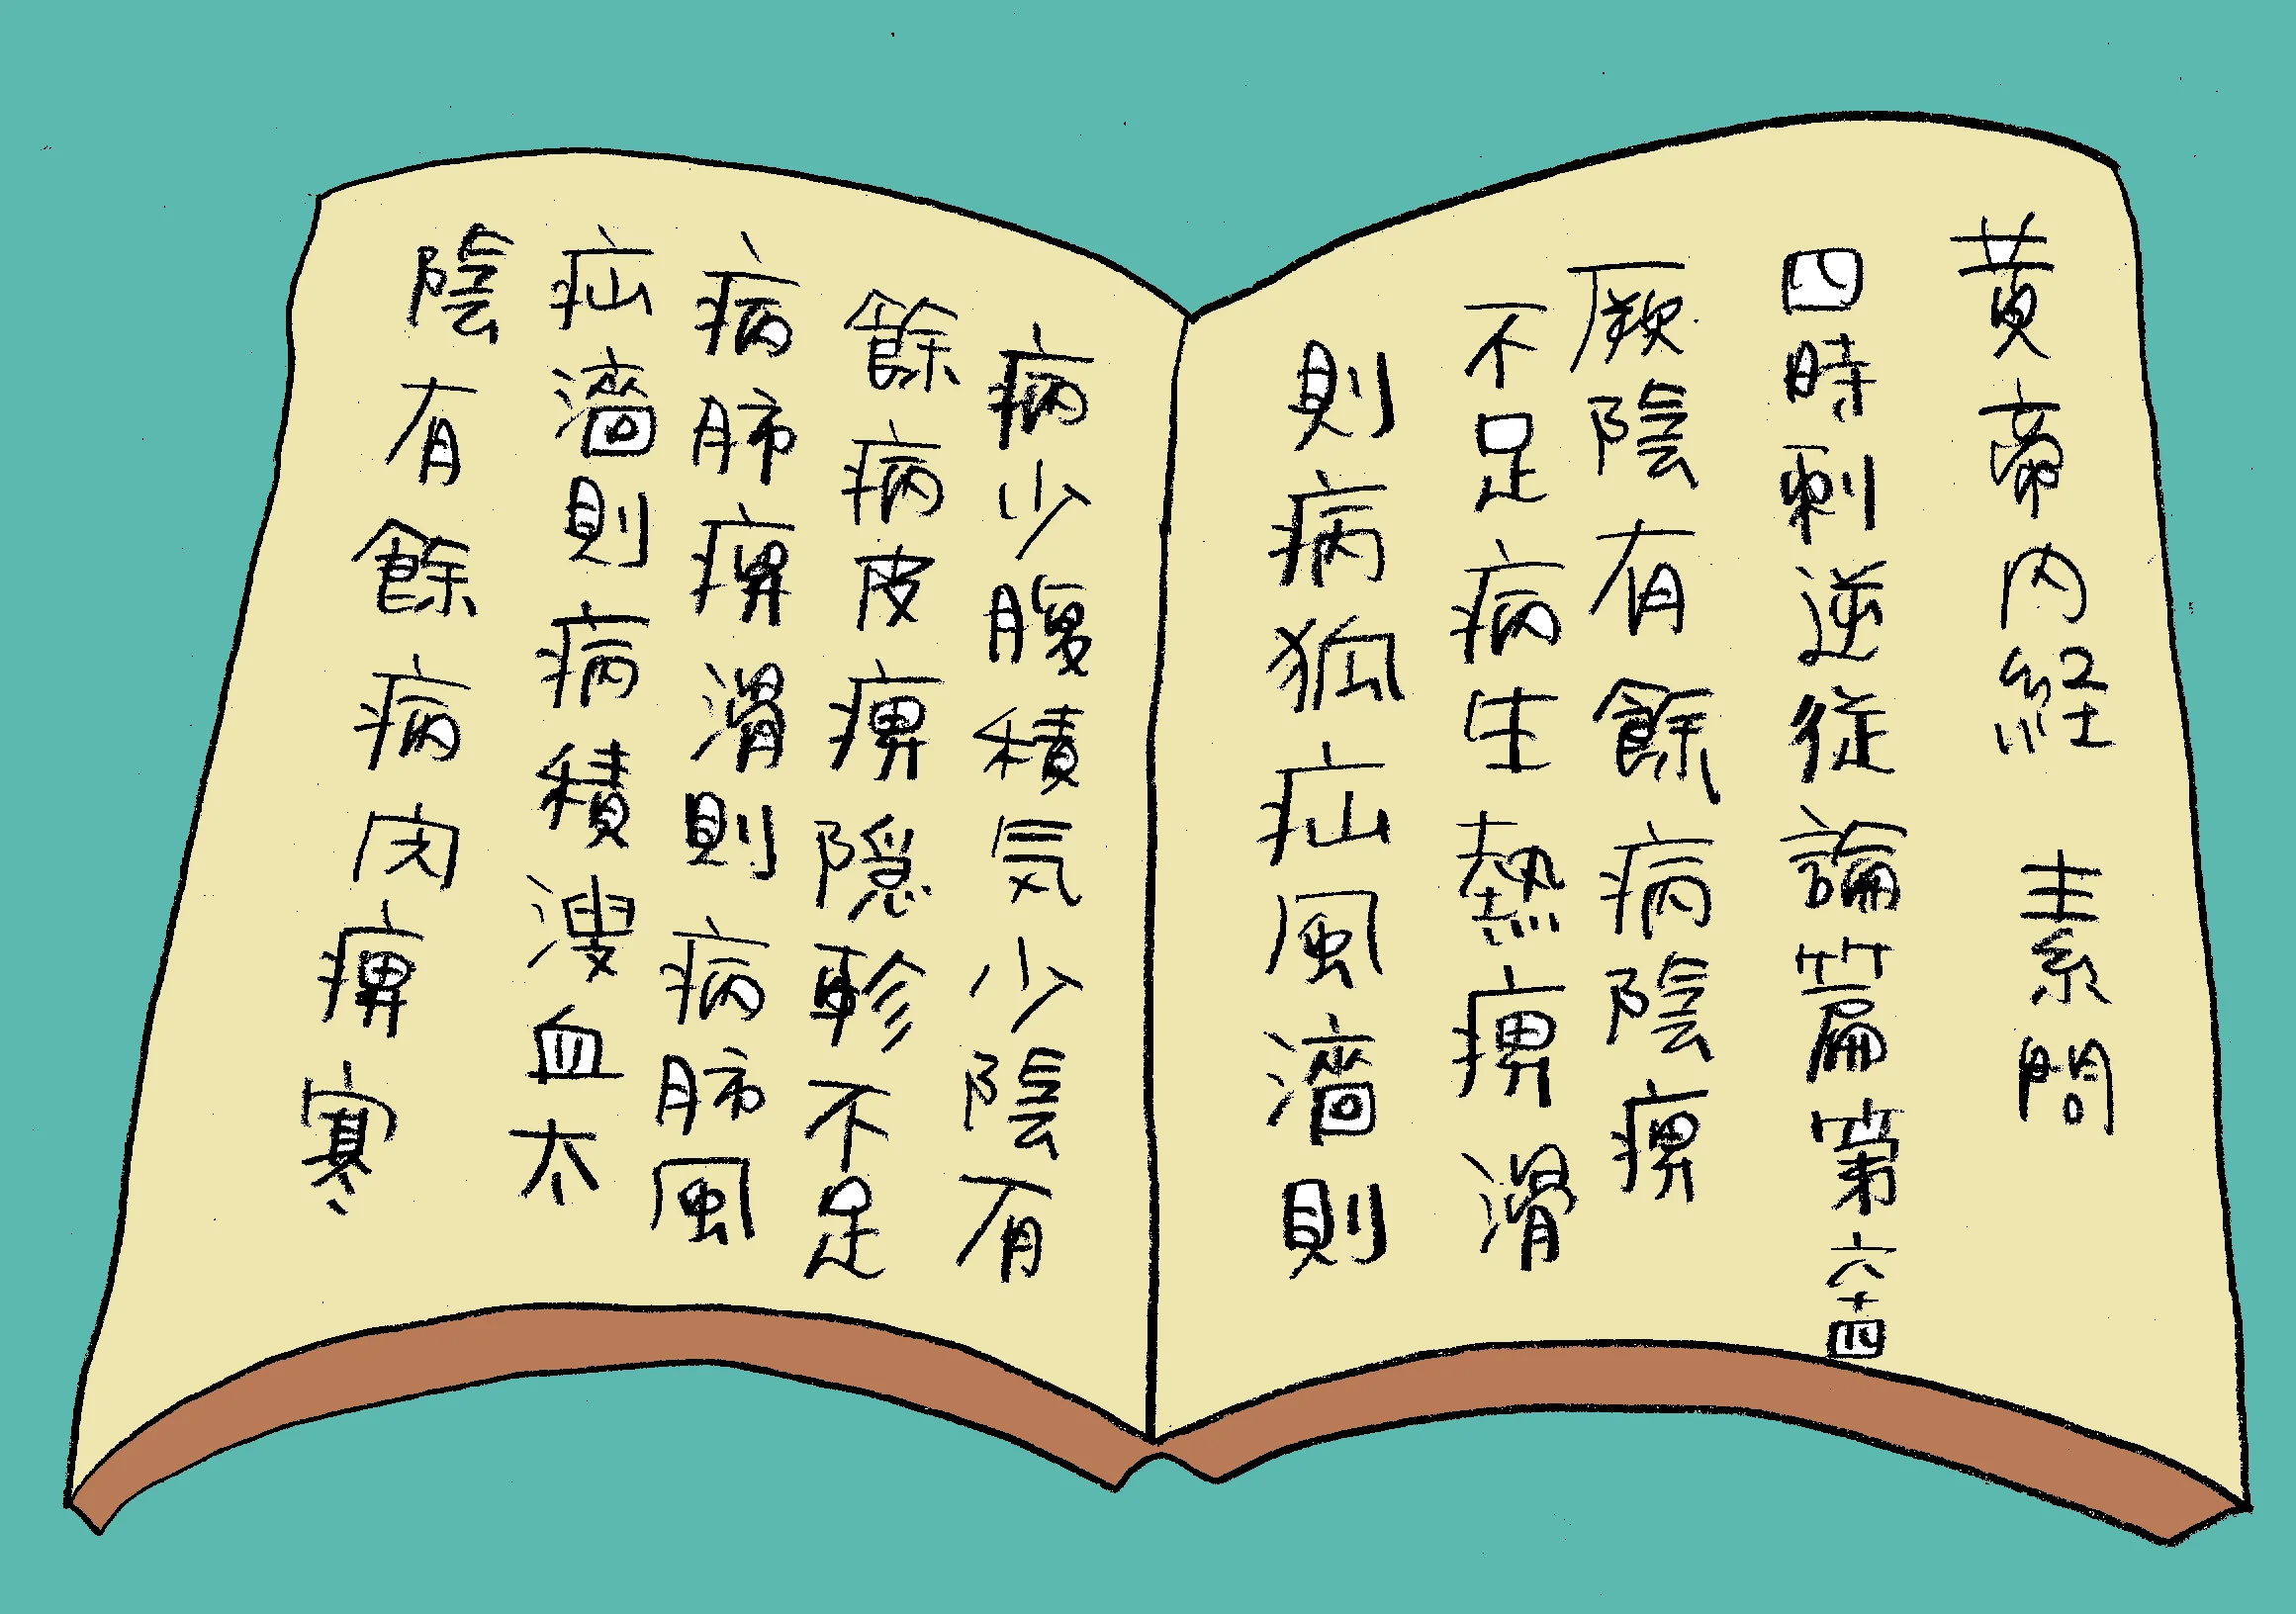 黄帝内経 素問
四時刺逆従論篇第六十四
厥陰有餘病陰痺
不足病生熱痺滑
則病狐疝風濇則
病少腹積気少陰有
餘病皮痺隠軫不足
病肺痺滑則病肺風
疝濇則病積溲血太
陰有餘病肉痺寒